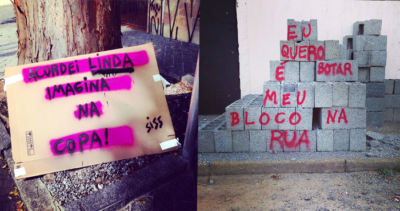 ACORDEI LINDA
IMAGINA
NA
COPA!
SISS
EU
QUERO
É BOTAR
MEU
BLOCO NA
RUA